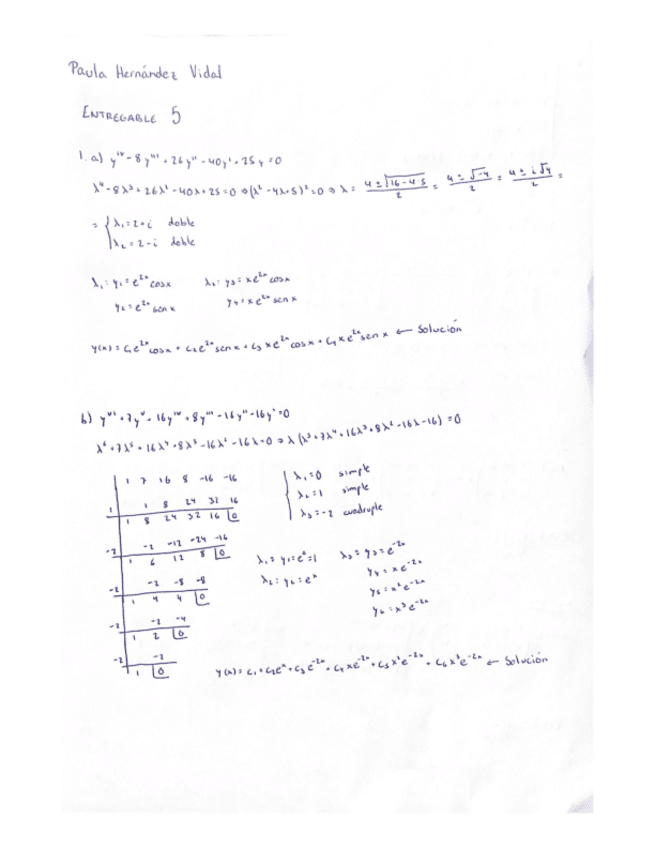 Paula Hernández Vidal
ENTREGABLE 5
1. a) y'ᵛ - 8y''' + 26y'' - 40y' + 25y = 0
λ⁴ - 8λ³ + 26λ² - 40λ + 25 = 0 ⇒ (λ² - 4λ + 5)² = 0 ⇒ λ = (4 ± √(16 - 4·5))/2 = (4 ± √-4)/2 = (4 ± i√4)/2 =
= { λ₁ = 2+i doble
λ₂ = 2-i doble
λ₁: y₁ = e²ˣ cosx λ₂: y₃ = xe²ˣ cosx
y₂ = e²ˣ sen x y₄ = xe²ˣ sen x
y(x) = c₁e²ˣ cosx + c₂e²ˣ senx + c₃xe²ˣ cosx + c₄xe²ˣ sen x ← Solución
b) yᵛⁱ + 7yᵛ + 16yⁱᵛ + 8y''' - 16y'' - 16y' = 0
λ⁶ + 7λ⁵ + 16λ⁴ + 8λ³ - 16λ² - 16λ = 0 ⇒ λ(λ⁵ + 7λ⁴ + 16λ³ + 8λ² - 16λ - 16) = 0
1 7 16 8 -16 -16
1 1 8 24 32 16
1 8 24 32 16 0
-2 -2 -12 -24 -16
1 6 12 8 0
-2 -2 -8 -8
1 4 4 0
-2 -2 -4
1 2 0
-2 -2
1 0
λ₁ = 0 simple
λ₂ = 1 simple
λ₃ = -2 cuádruple
λ₁: y₁ = e⁰ = 1 λ₃: y₃ = e⁻²ˣ
λ₂: y₂ = eˣ y₄ = xe⁻²ˣ
y₅ = x²e⁻²ˣ
y₆ = x³e⁻²ˣ
y(x) = c₁ + c₂eˣ + c₃e⁻²ˣ + c₄xe⁻²ˣ + c₅x²e⁻²ˣ + c₆x³e⁻²ˣ ← Solución